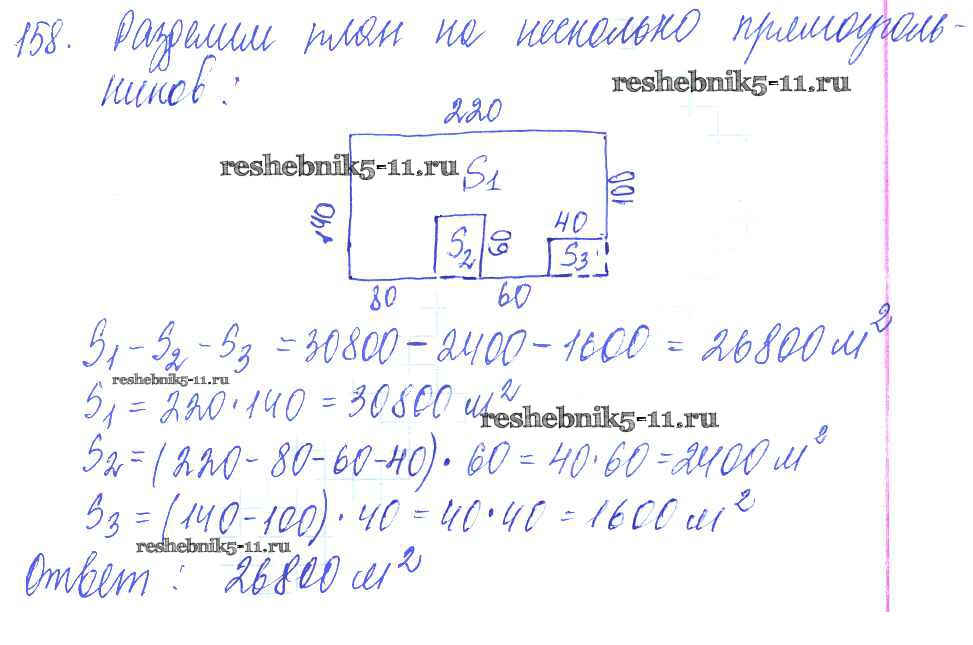 158. Разделим план на несколько прямоуголь-
reshebnik5-11.ru
ников:
220
reshebnik5-11.ru
S1
100
140
40
S2
60
S3
80
60
S1 - S2 - S3 = 30800 - 2400 - 1600 = 26800 м²
reshebnik5-11.ru
S1 = 220·140 = 30800 м²
reshebnik5-11.ru
S2 = (220-80-60-40)·60 = 40·60 = 2400 м²
S3 = (140-100)·40 = 40·40 = 1600 м²
reshebnik5-11.ru
Ответ: 26800 м²